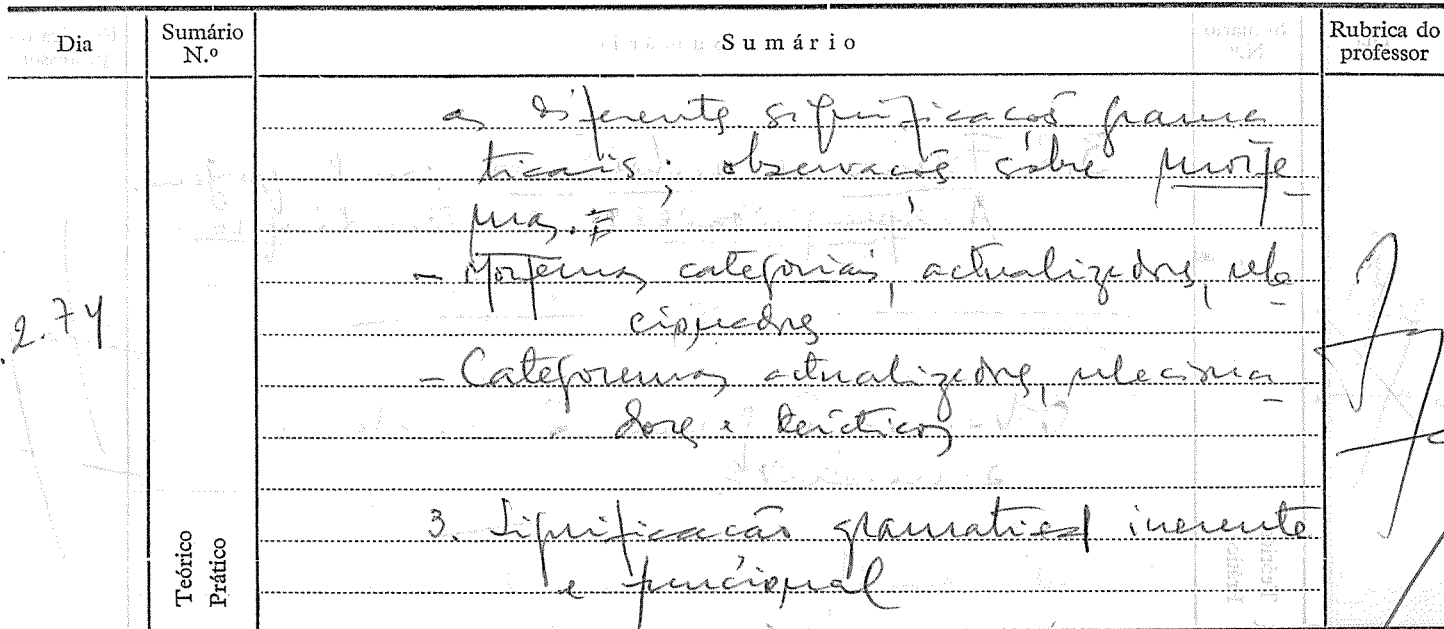 Dia
Sumário N.º
Sumário
Rubrica do professor
as diferentes significações grama
ticais; observações sôbre morfe-
mas.
- Morfemas categoriais, actualizadores, rela-
cionadores
.2.74
- Categoremas actualizadores, relaciona-
dores e deícticos
3. Significação gramatical inerente
e funcional
Teórico
Prático